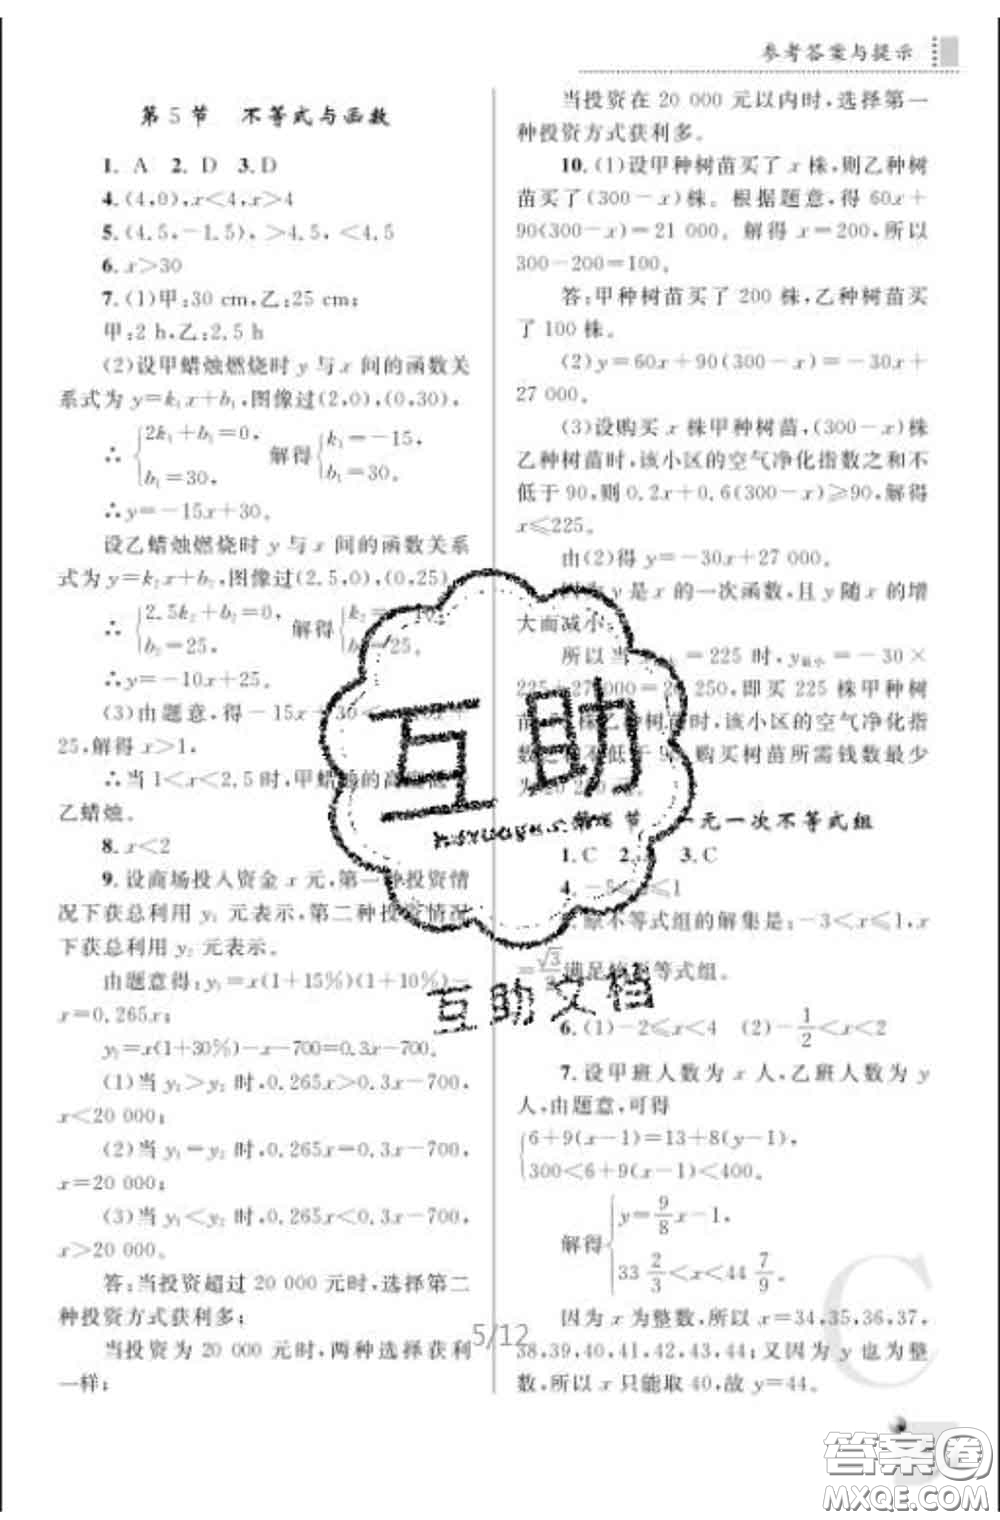 参考答案与提示
第 5 节　不等式与函数
1. A　2. D　3. D
4. (4,0), x<4, x>4
5. (4.5, -1.5), >4.5, <4.5
6. x>30
7. (1)甲:30 cm,乙:25 cm;
甲:2 h,乙:2.5 h
(2)设甲蜡烛燃烧时 y 与 x 间的函数关
系式为 y=k₁x+b₁,图像过(2,0),(0,30),
∴ {2k₁+b₁=0, b₁=30, 解得 {k₁=-15, b₁=30.
∴y=-15x+30。
设乙蜡烛燃烧时 y 与 x 间的函数关系
式为 y=k₂x+b₂,图像过(2.5,0),(0,25)
∴ {2.5k₂+b₂=0, b₂=25, 解得 {k₂= 10, =25.
∴y=-10x+25。
(3)由题意,得-15x+30
25,解得 x>1,
∴当 1<x<2.5 时,甲蜡 的高
乙蜡烛。
8. x<2
9. 设商场投入资金 x 元,第一种投资情
况下获总利用 y₁ 元表示,第二种投资情况
下获总利用 y₂ 元表示。
由题意得:y₁=x(1+15%)(1+10%)-
x=0.265x;
y₂=x(1+30%)-x-700=0.3x-700。
(1)当 y₁>y₂ 时,0.265x>0.3x-700,
x<20 000;
(2)当 y₁=y₂ 时,0.265x=0.3x-700,
x=20 000;
(3)当 y₁<y₂ 时,0.265x<0.3x-700,
x>20 000。
答:当投资超过 20 000 元时,选择第二
种投资方式获利多;
当投资为 20 000 元时,两种选择获利
一样;
当投资在 20 000 元以内时,选择第一
种投资方式获利多。
10. (1)设甲种树苗买了 x 株,则乙种树
苗买了(300-x)株。根据题意,得 60x+
90(300-x)=21 000。解得 x=200,所以
300-200=100。
答:甲种树苗买了 200 株,乙种树苗买
了 100 株。
(2)y=60x+90(300-x)=-30x+
27 000。
(3)设购买 x 株甲种树苗,(300-x)株
乙种树苗时,该小区的空气净化指数之和不
低于 90,则 0.2x+0.6(300-x)≥90,解得
x≤225。
由(2)得 y=-30x+27 000。
y 是 x 的一次函数,且 y 随 x 的增
大而减小
所以当 =225 时,y最小=-30×
225+27 000=20 250,即买 225 株甲种树
株乙种树苗时,该小区的空气净化指
不低于 9 ,购买树苗所需钱数最少
为 20 250 元。
节　一元一次不等式组
1. C　2.　3. C
4. -5≤ ≤1
原不等式组的解集是:-3<x≤1,x
=√3/ 满足 等式组。
6. (1)-2≤x<4　(2)-1/2<x<2
7. 设甲班人数为 x 人,乙班人数为 y
人,由题意,可得
{6+9(x-1)=13+8(y-1),
300<6+9(x-1)<400.
解得 {y=9/8x-1, 33 2/3<x<44 7/9.
因为 x 为整数,所以 x=34,35,36,37,
38,39,40,41,42,43,44;又因为 y 也为整
数,所以 x 只能取 40,故 y=44。
5/12
互助
互助文档
答案圈
MXQE.COM